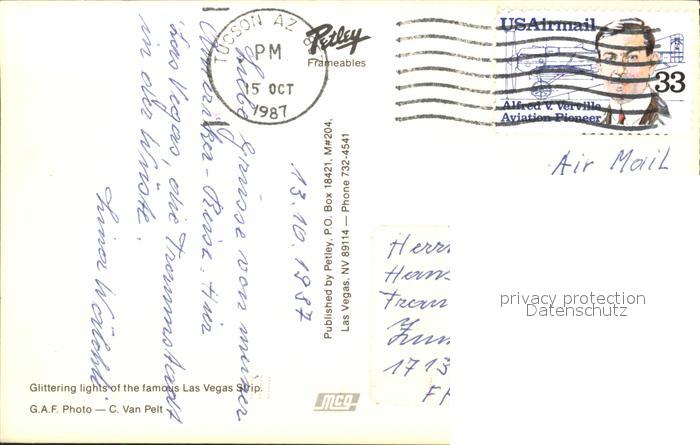 TUCSON AZ
PM
15 OCT
1987
Petley
Frameables
USAirmail
33
Alfred V. Verville
Aviation Pioneer
Air Mail
13.10.1987
Liebe Grüsse von meiner
Amerika-Reise. Hier
Las Vegas, die Traumstadt
in der Wüste.
Published by Petley, P.O. Box 18421, M#204,
Las Vegas, NV 89114 — Phone 732-4541
Herr
Hans
171
privacy protection
Datenschutz
Glittering lights of the famous Las Vegas Strip.
G.A.F. Photo — C. Van Pelt
mcg